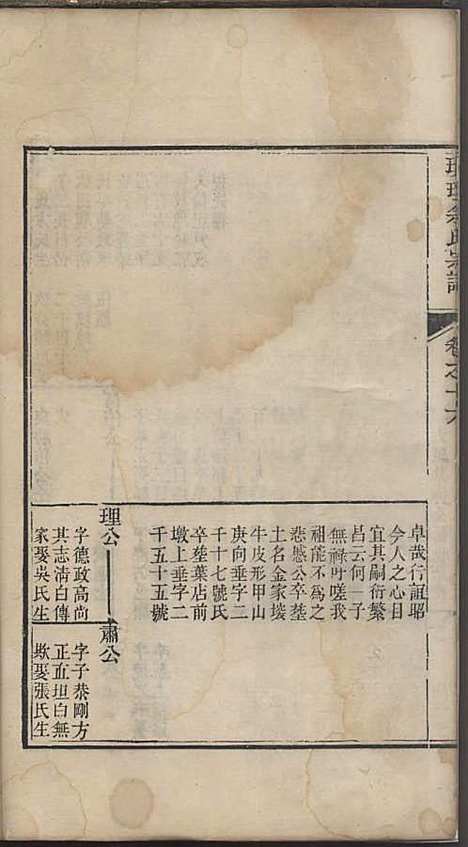 余氏宗譜
卷之十六
卓哉行誼昭
今人之心目
宜其嗣衍繁
昌云何一子
無祿吁嗟我
祖能不爲之
悲慼公卒塟
土名金家塝
牛皮形甲山
庚向垂字二
千十七號氏
卒塟葉店前
墩上垂字二
千五十五號
理公
字德政高尚
其志淸白傳
家娶吳氏生
肅公
字子恭剛方
正直坦白無
欺娶張氏生